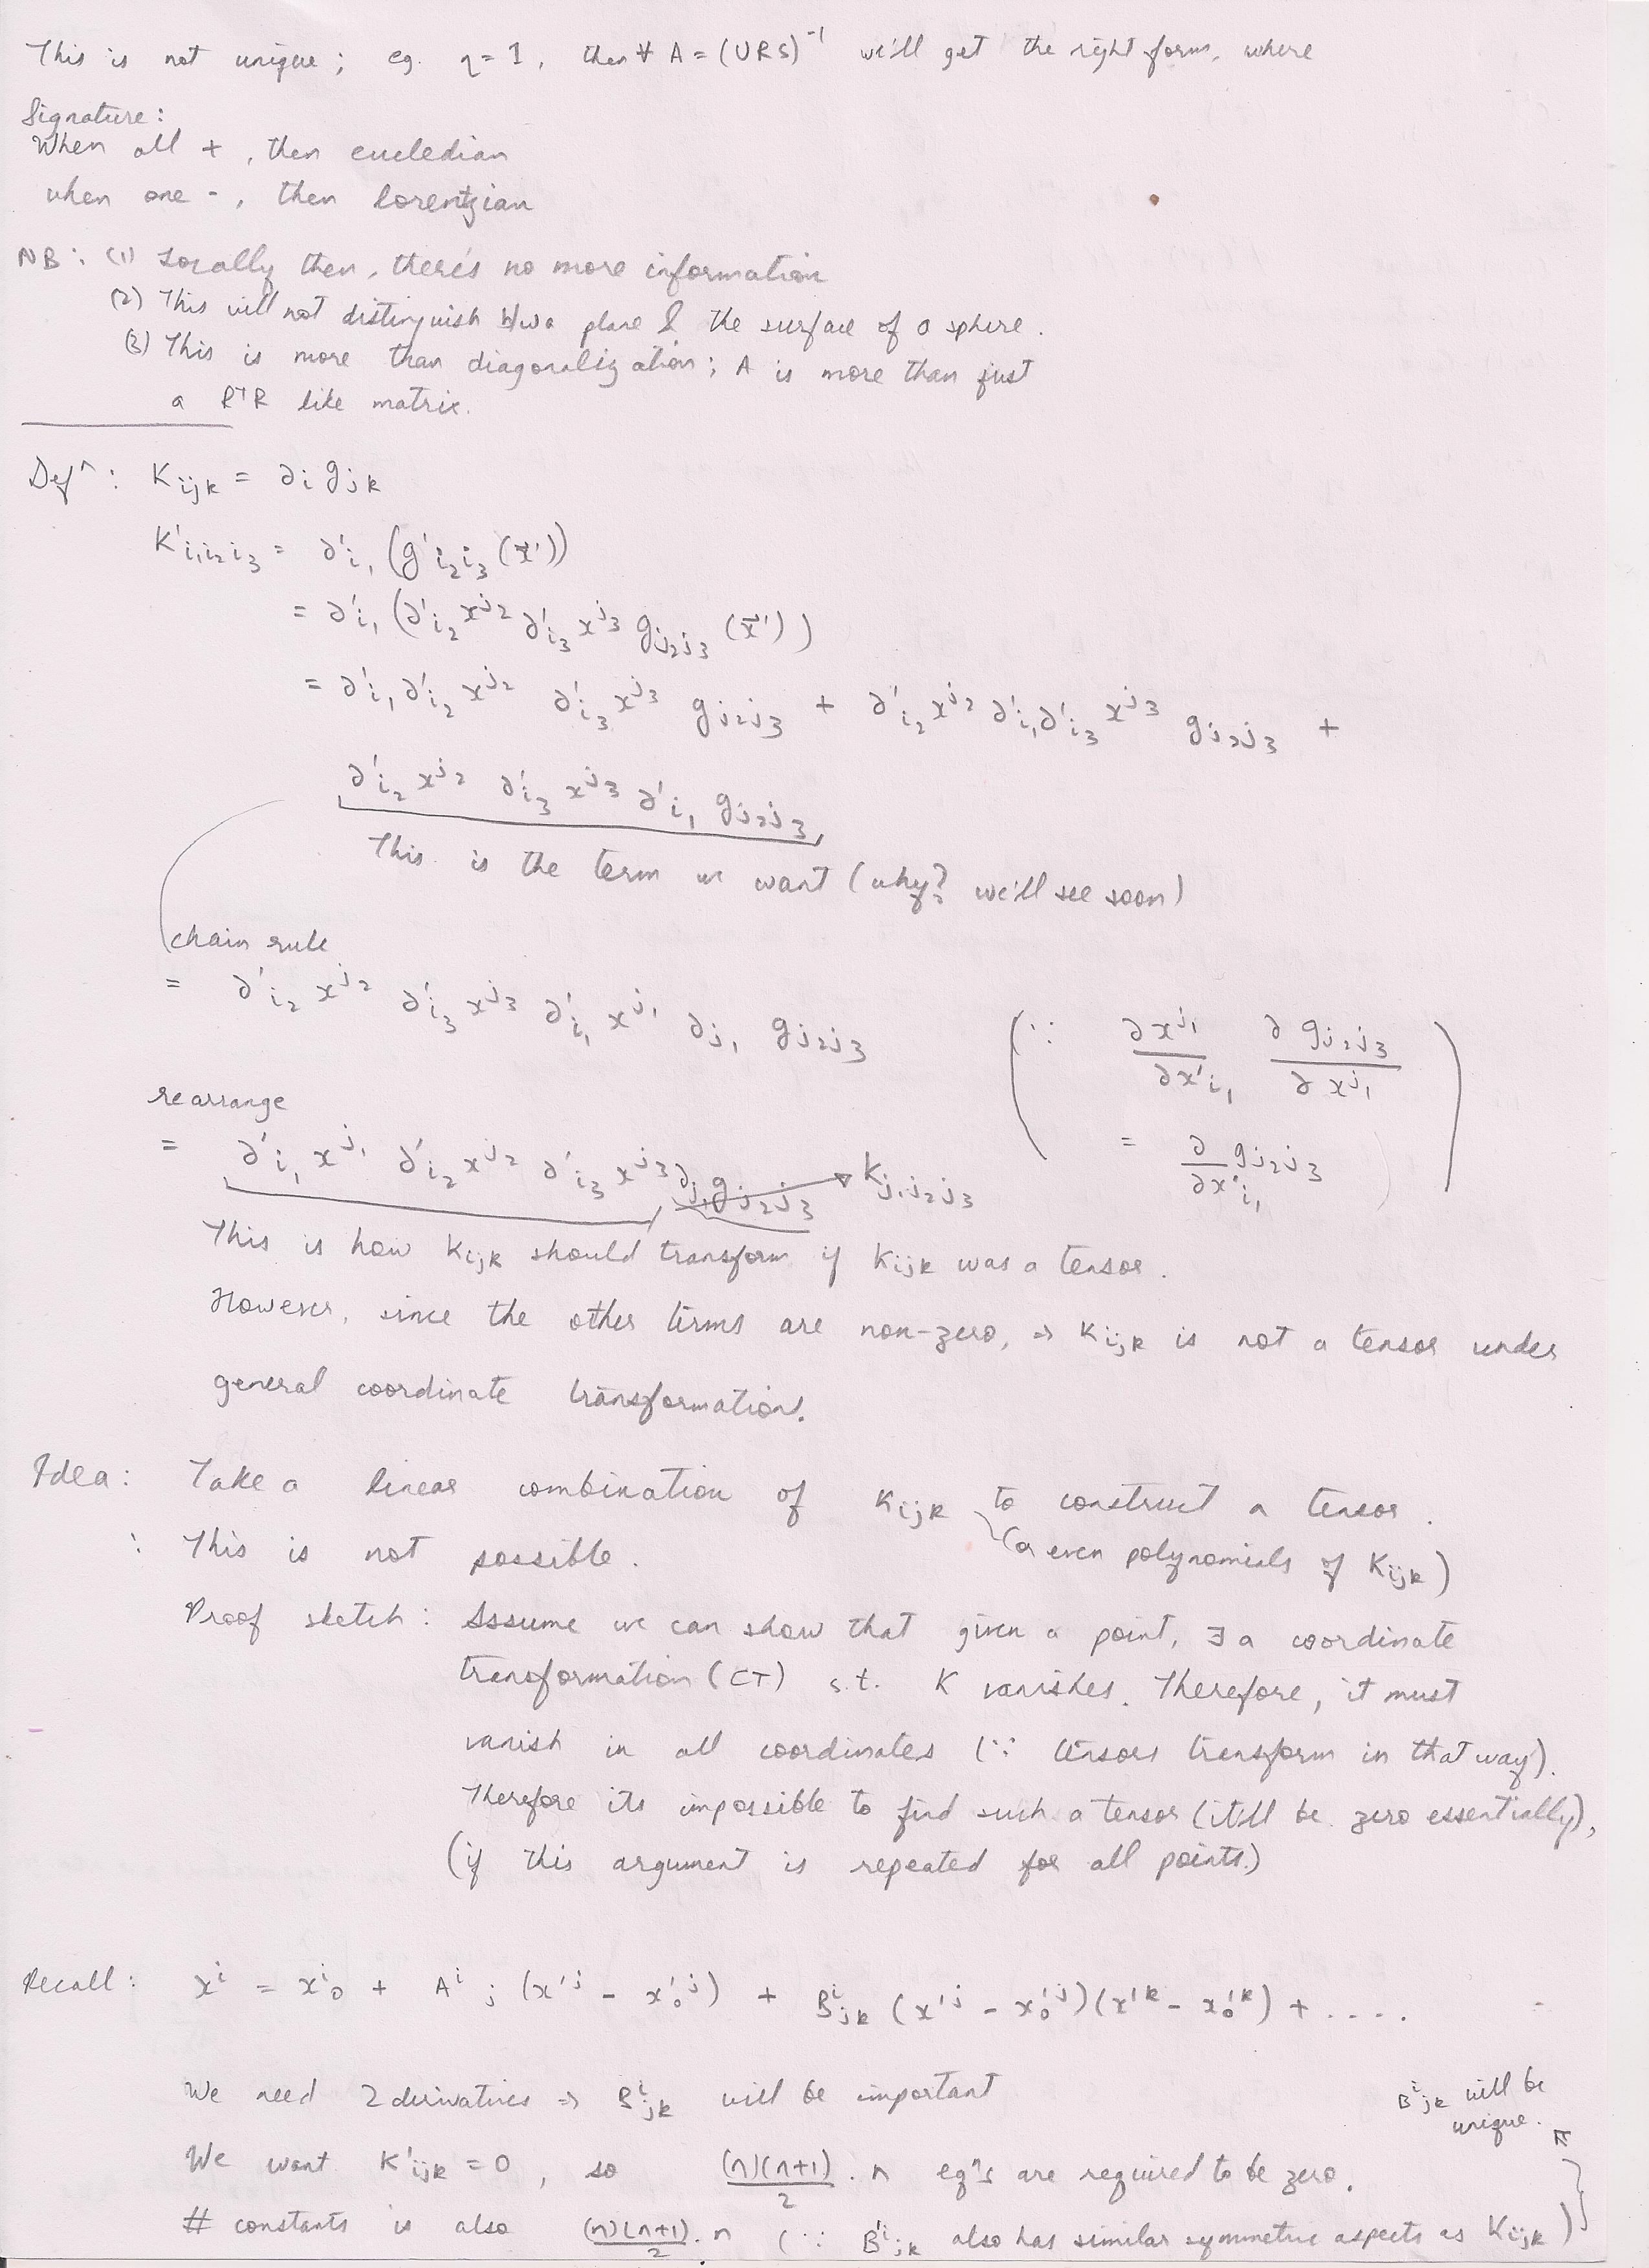 This is not unique; eg. η=1, then ∀ A = (URS)⁻¹ we'll get the right form, where
Signature:
When all +, then eucledian
when one -, then lorentzian
NB: (1) Locally then, there's no more information
(2) This will not distinguish b/w a plane & the surface of a sphere.
(3) This is more than diagonalization; A is more than just
a RᵀR like matrix.
Defⁿ: K_{ijk} = ∂_i g_{jk}
K'_{i₁i₂i₃} = ∂'_{i₁} (g'_{i₂i₃}(x⃗'))
= ∂'_{i₁} (∂'_{i₂} x^{j₂} ∂'_{i₃} x^{j₃} g_{j₂j₃} (x⃗'))
= ∂'_{i₁} ∂'_{i₂} x^{j₂} ∂'_{i₃} x^{j₃} g_{j₂j₃} + ∂'_{i₂} x^{j₂} ∂'_{i₁} ∂'_{i₃} x^{j₃} g_{j₂j₃} +
∂'_{i₂} x^{j₂} ∂'_{i₃} x^{j₃} ∂'_{i₁} g_{j₂j₃}
This is the term we want (why? we'll see soon)
chain rule
= ∂'_{i₂} x^{j₂} ∂'_{i₃} x^{j₃} ∂'_{i₁} x^{j₁} ∂_{j₁} g_{j₂j₃} (∵ ∂x^{j₁}/∂x'^{i₁} ∂g_{j₂j₃}/∂x^{j₁}
= ∂/∂x'^{i₁} g_{j₂j₃})
rearrange
= ∂'_{i₁} x^{j₁} ∂'_{i₂} x^{j₂} ∂'_{i₃} x^{j₃} ∂_{j₁} g_{j₂j₃} → K_{j₁j₂j₃}
This is how K_{ijk} should transform if K_{ijk} was a tensor.
However, since the other terms are non-zero, ⇒ K_{ijk} is not a tensor under
general coordinate transformation.
Idea: Take a linear combination of K_{ijk} to construct a tensor.
(or even polynomials of K_{ijk})
: This is not possible.
Proof sketch: Assume we can show that given a point, ∃ a coordinate
transformation (CT) s.t. K vanishes. Therefore, it must
vanish in all coordinates (∵ tensors transform in that way).
Therefore its impossible to find such a tensor (it'll be zero essentially),
(if this argument is repeated for all points.)
Recall: x^i = x^i_0 + A^i_j (x'^j - x'^j_0) + B^i_{jk} (x'^j - x'^j_0)(x'^k - x'^k_0) + ....
We need 2 derivatives ⇒ B^i_{jk} will be important
B^i_{jk} will be
unique.
We want K'_{ijk} = 0, so (n)(n+1)/2 . n eqⁿs are required to be zero.
# constants is also (n)(n+1)/2 . n (∵ B^i_{jk} also has similar symmetric aspects as K_{ijk})